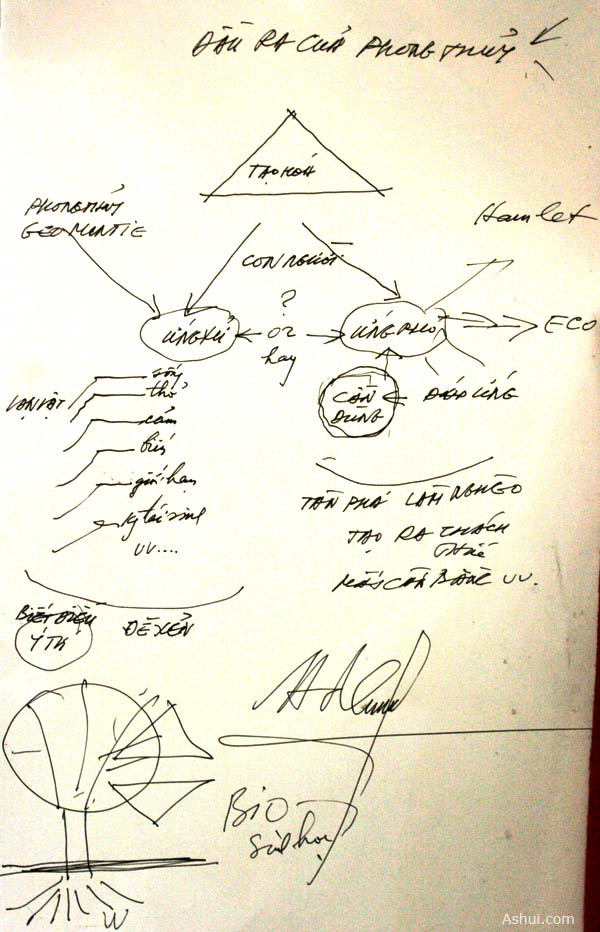 ĐẦU RA CỦA PHONG THỦY
TẠO HOÁ
PHONG THỦY
Hamlet
CON NGƯỜI
?
ỨNG XỬ
or
hay
ỨNG PHÓ
ECO
VẠN VẬT
sống
thở
cảm
biến
giới hạn
kỳ tái sinh
VV....
CẦN
DÙNG
ĐÁP ỨNG
TÀN PHÁ LÀM NGHÈO
TẠO RA THÁCH
MẤT CÂN BẰNG VV.
BIẾT ĐIỀU
ĐÈ XẺN
BIO
Sinh học
Ashui.com